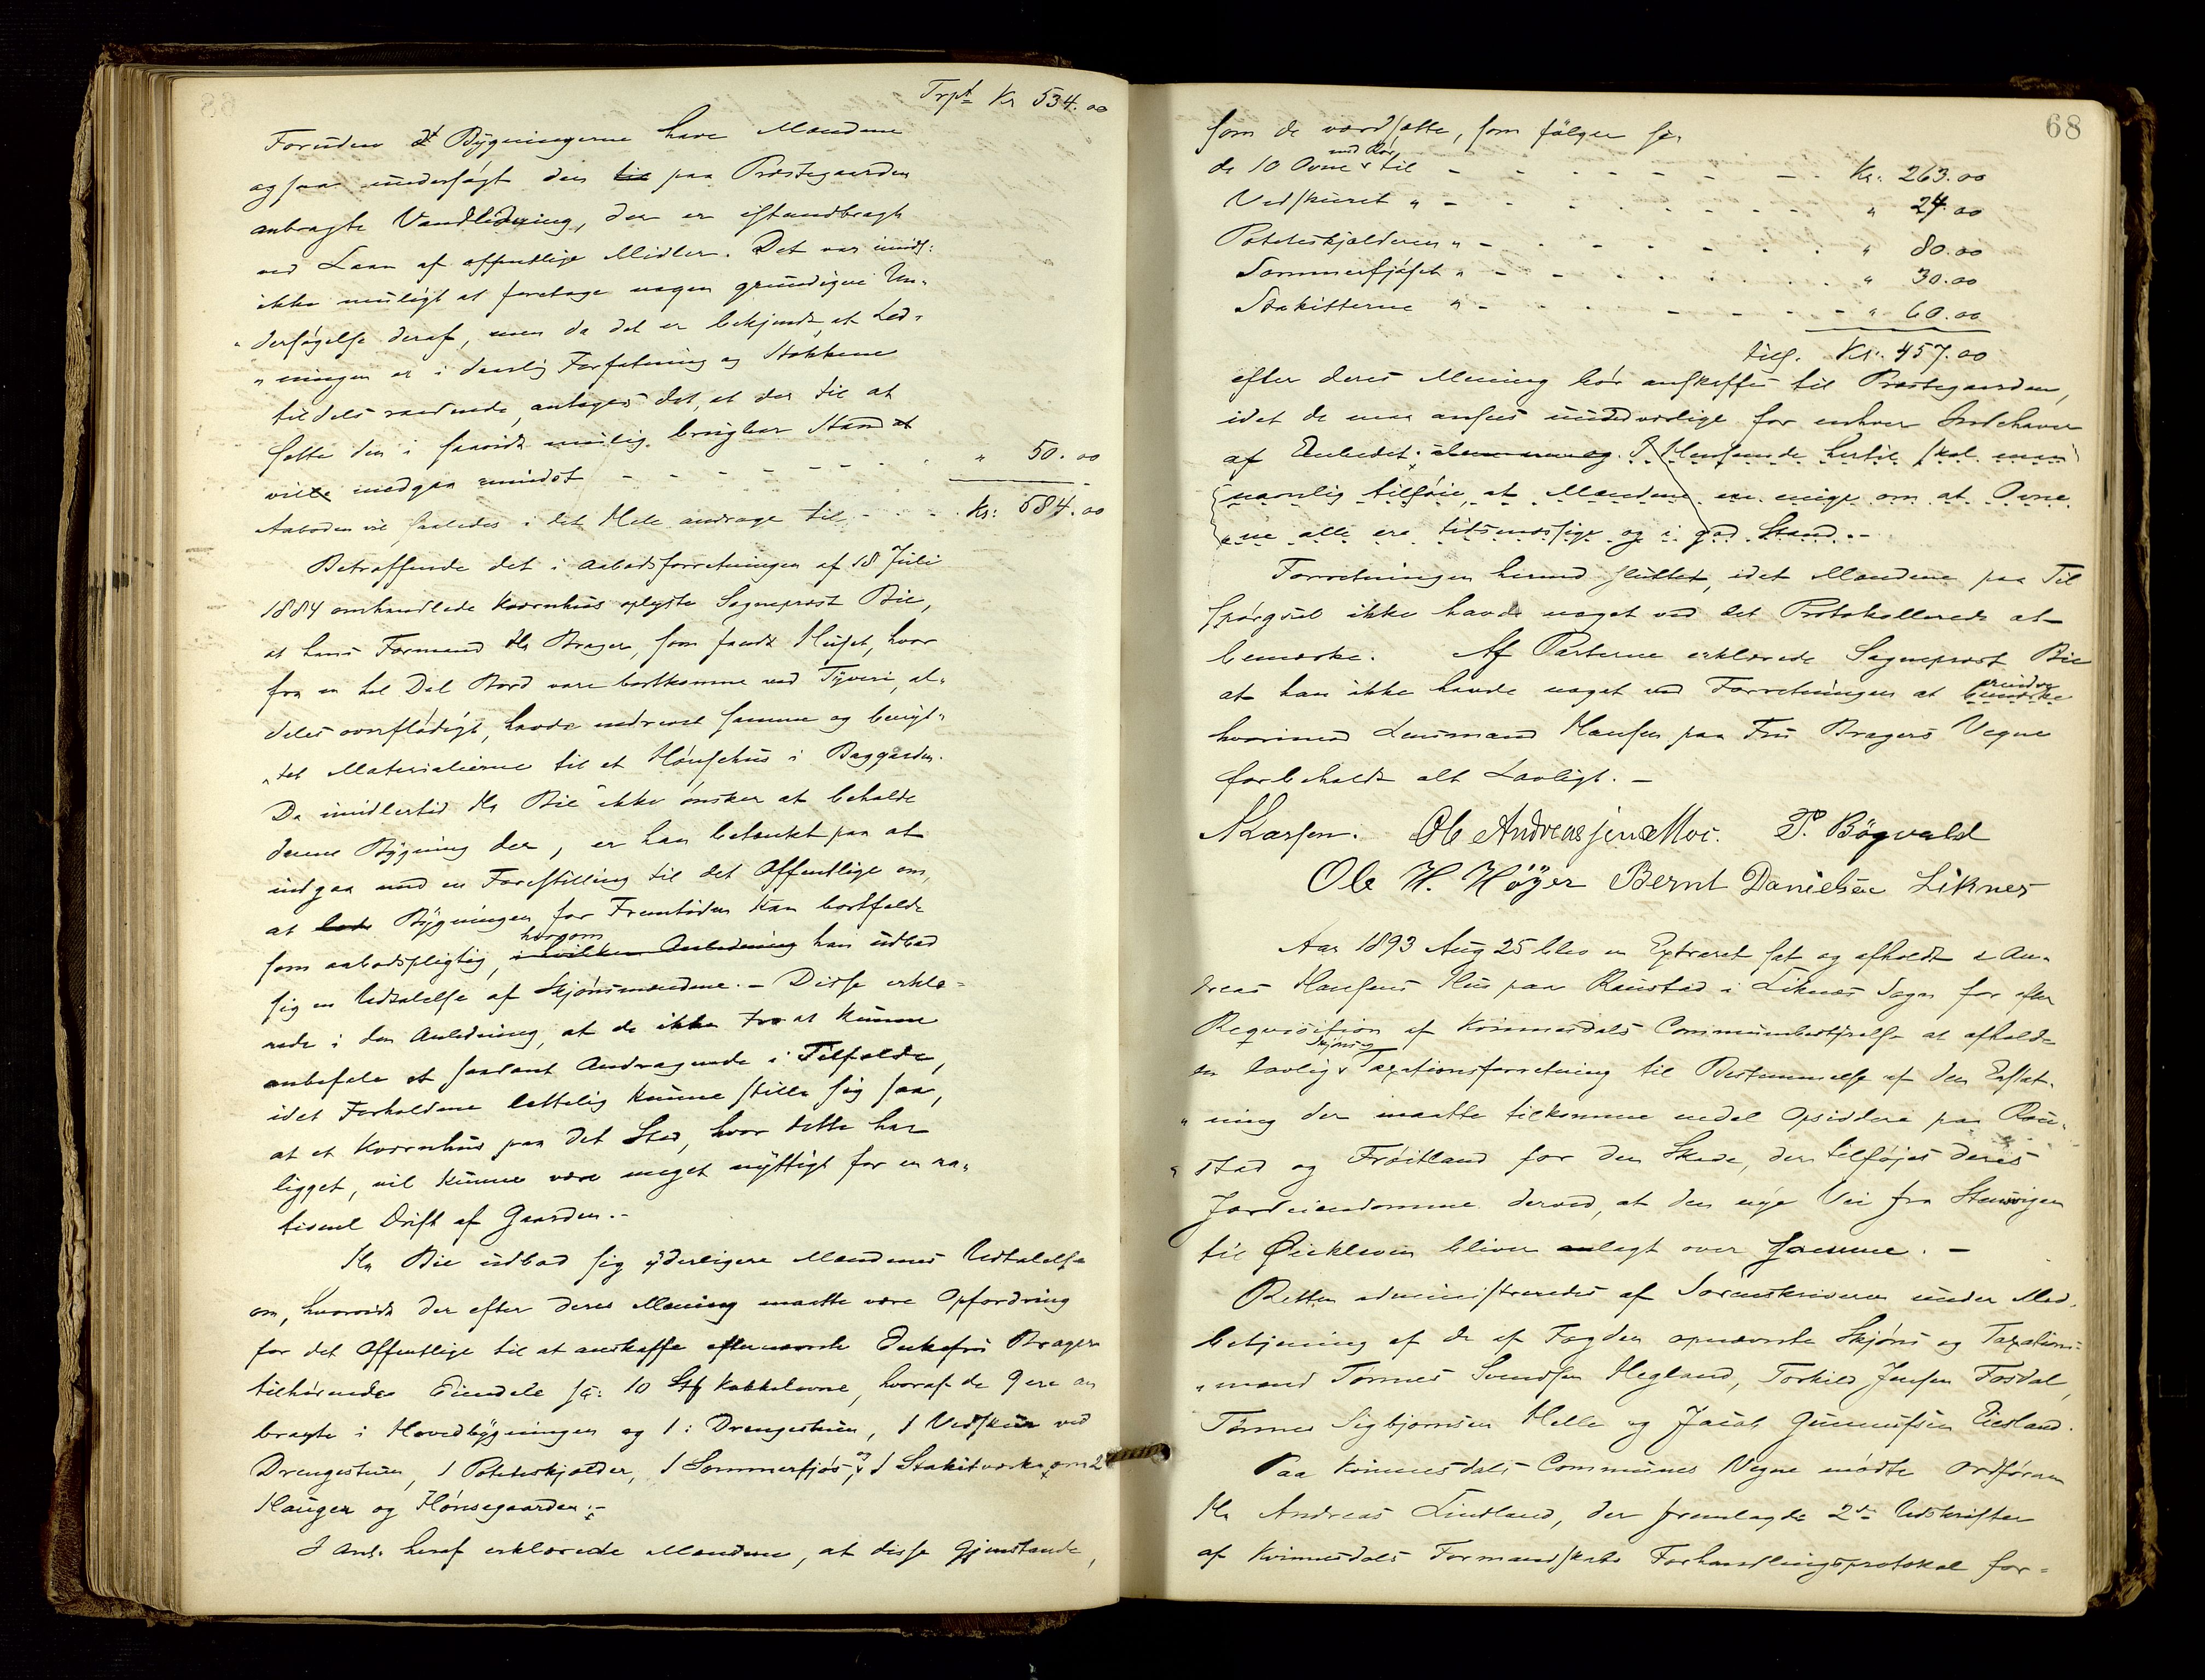 Trpt Kr 534.00
Foruden dt Bygningerne have Mændene
ogsaa undersøgt den til paa Præstegaarden
anbragte Vandledning, der er istandbragt
ved Laan af offentlige Midler. Det var imidl:
ikke muligt at foretage nogen grundigere Un-
"dersøgelse deraf, men da det er bekjendt, at Led-
"ningen er i daarlig Forfatning og Stokkene
tildels raadnede, antages det, at der til at
sætte den i saavidt mulig brugbar Stand at
ville medgaa mindst - - - - - - " 50.00
Aaboden vil saaledes i det Hele andrage til - - - Kr: 584.00
Betræffende det i Aabodsforretningen af 18 Juli
1884 omhandlede Kværnhus oplyste Sogneprest Bie,
at hans Formand Hr Brager, som fandt Huset, hvor
fra en hel Del Bord vare bortkomne ved Tyveri, al-
deles overflødigt, havde nedrevet samme og benyt-
"tet Materialierne til et Hønsehus i Baggaarden.
Da imidlertid Hr Bie ikke ønsker at beholde
denne Bygning der, er han betænkt paa at
indgaa med en Forestilling til det Offentlige om,
at lade Bygningen for Fremtiden kan bortfalde
hvorom
som aabodspligtig, i hvilken Anledning han udbad
sig en Udtalelse af Skjønsmændene. - Disse erklæ-
rede i den Anledning, at de ikke tror at kunne
anbefale et saadant Andragende i Tilfælde,
idet Forholdene lettelig kunne stille sig saa,
at et Kværnhus paa det Sted, hvor dette har
ligget, vil kunne være meget nyttigt for en ra-
tionel Drift af Gaarden. -
Hr Bie udbad sig yderligere Mændenes Udtalelse
om, hvorvidt der efter deres Mening maatte være Opfordring
for det Offentlige til at anskaffe efternævnte Enkefru Brager
tilhørende Eiendele sc: 10 Stk Kakkelovne, hvoraf de 9 ere an
bragte i Hovedbygningen og 1 i Drengestuen, 1 Vedskur ved
Drengestuen, 1 Poteteskjælder, 1 Sommerfjøs, og 1 Stakitværk om 2
Hauger og Hønsegaarden. -
I Anl. heraf erklærede Mændene, at disse Gjenstande,
68
som de værdsætte, som følger sc.
med Rør
de 10 Ovne til - - - - - - - Kr. 263.00
Vedskuret " - - - - - - - " 24.00
Poteteskjælderen " - - - - - - " 80.00
Sommerfjøset " - - - - - - - " 30.00
Stakitterne " - - - - - - - " 60.00
tils. Kr. 457.00
efter deres Mening bør anskaffes til Præstegaarden,
idet de maa ansees uundværlige for enhver Indehaver
af Embedet. I Henseende hertil skal man
navnlig tilføie, at Mændene ere enige om at Ovne
"ne alle ere tidsmæssige og i god Stand. -
Forretningen hermed sluttet, idet Mændene paa Til
spørgsel ikke havde noget ved det Protokollerede at
bemærke. Af Parterne erklærede Sogneprest Bie
erindre
at han ikke havde noget ved Forretningen at bemærke
hvorimod Lensmand Hansen paa Fru Bragers Vegne
forbeholdt alt Lovligt. -
Larsen. Ole Andreas Jensen Moi. P. Bøgvald
Ole H. Høyer Bernt Danielsen Liknes
Aar 1893 Aug 25 blev en Extraret sat og afholdt i An-
dreas Hansens Hus paa Raustad i Liknes Sogn for efter
Reqvisition af Kvinnesdals Communebestyrelse at afholde
Skjøns og
en lovlig Taxationsforretning til Bestemmelse af den Erstat-
"ning der maatte tilkomme endel Opsiddere paa Rau-
"stad og Frøitland for den Skade, der tilføjes deres
Jordeiendomme derved, at den nye Vei fra Stenvigen
til Øiekleven bliver anlagt over samme. -
Retten administreredes af Sorenskriveren under Med-
betjening af de af Fogden opnævnte Skjøns og Taxations-
"mænd Tønnes Svendsen Hegland, Torkild Jensen Fosdal,
Tønnes Sigbjørnsen Helle og Jacob Gunnufsen Eiesland.
Paa Kvinnesdals Communes Vegne mødte Ordføreren
Hr Andreas Lindland, der fremlagde 2de Udskrifter
af Kvinnesdals Formandskabs Forhandlingsprotokol for-